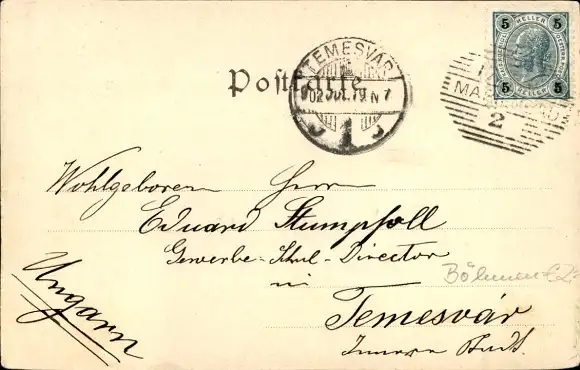 5 HELLER 5
5 5
TEMESVÁR
Postkarte
902 JUL. 19 N 7
MARIENBAD
2
1
Wohlgeboren Herrn
Eduard Stumpfoll
Gewerbe-Schul-Director
in
Böhmen
Temesvár
Ungarn
Innere Stadt.